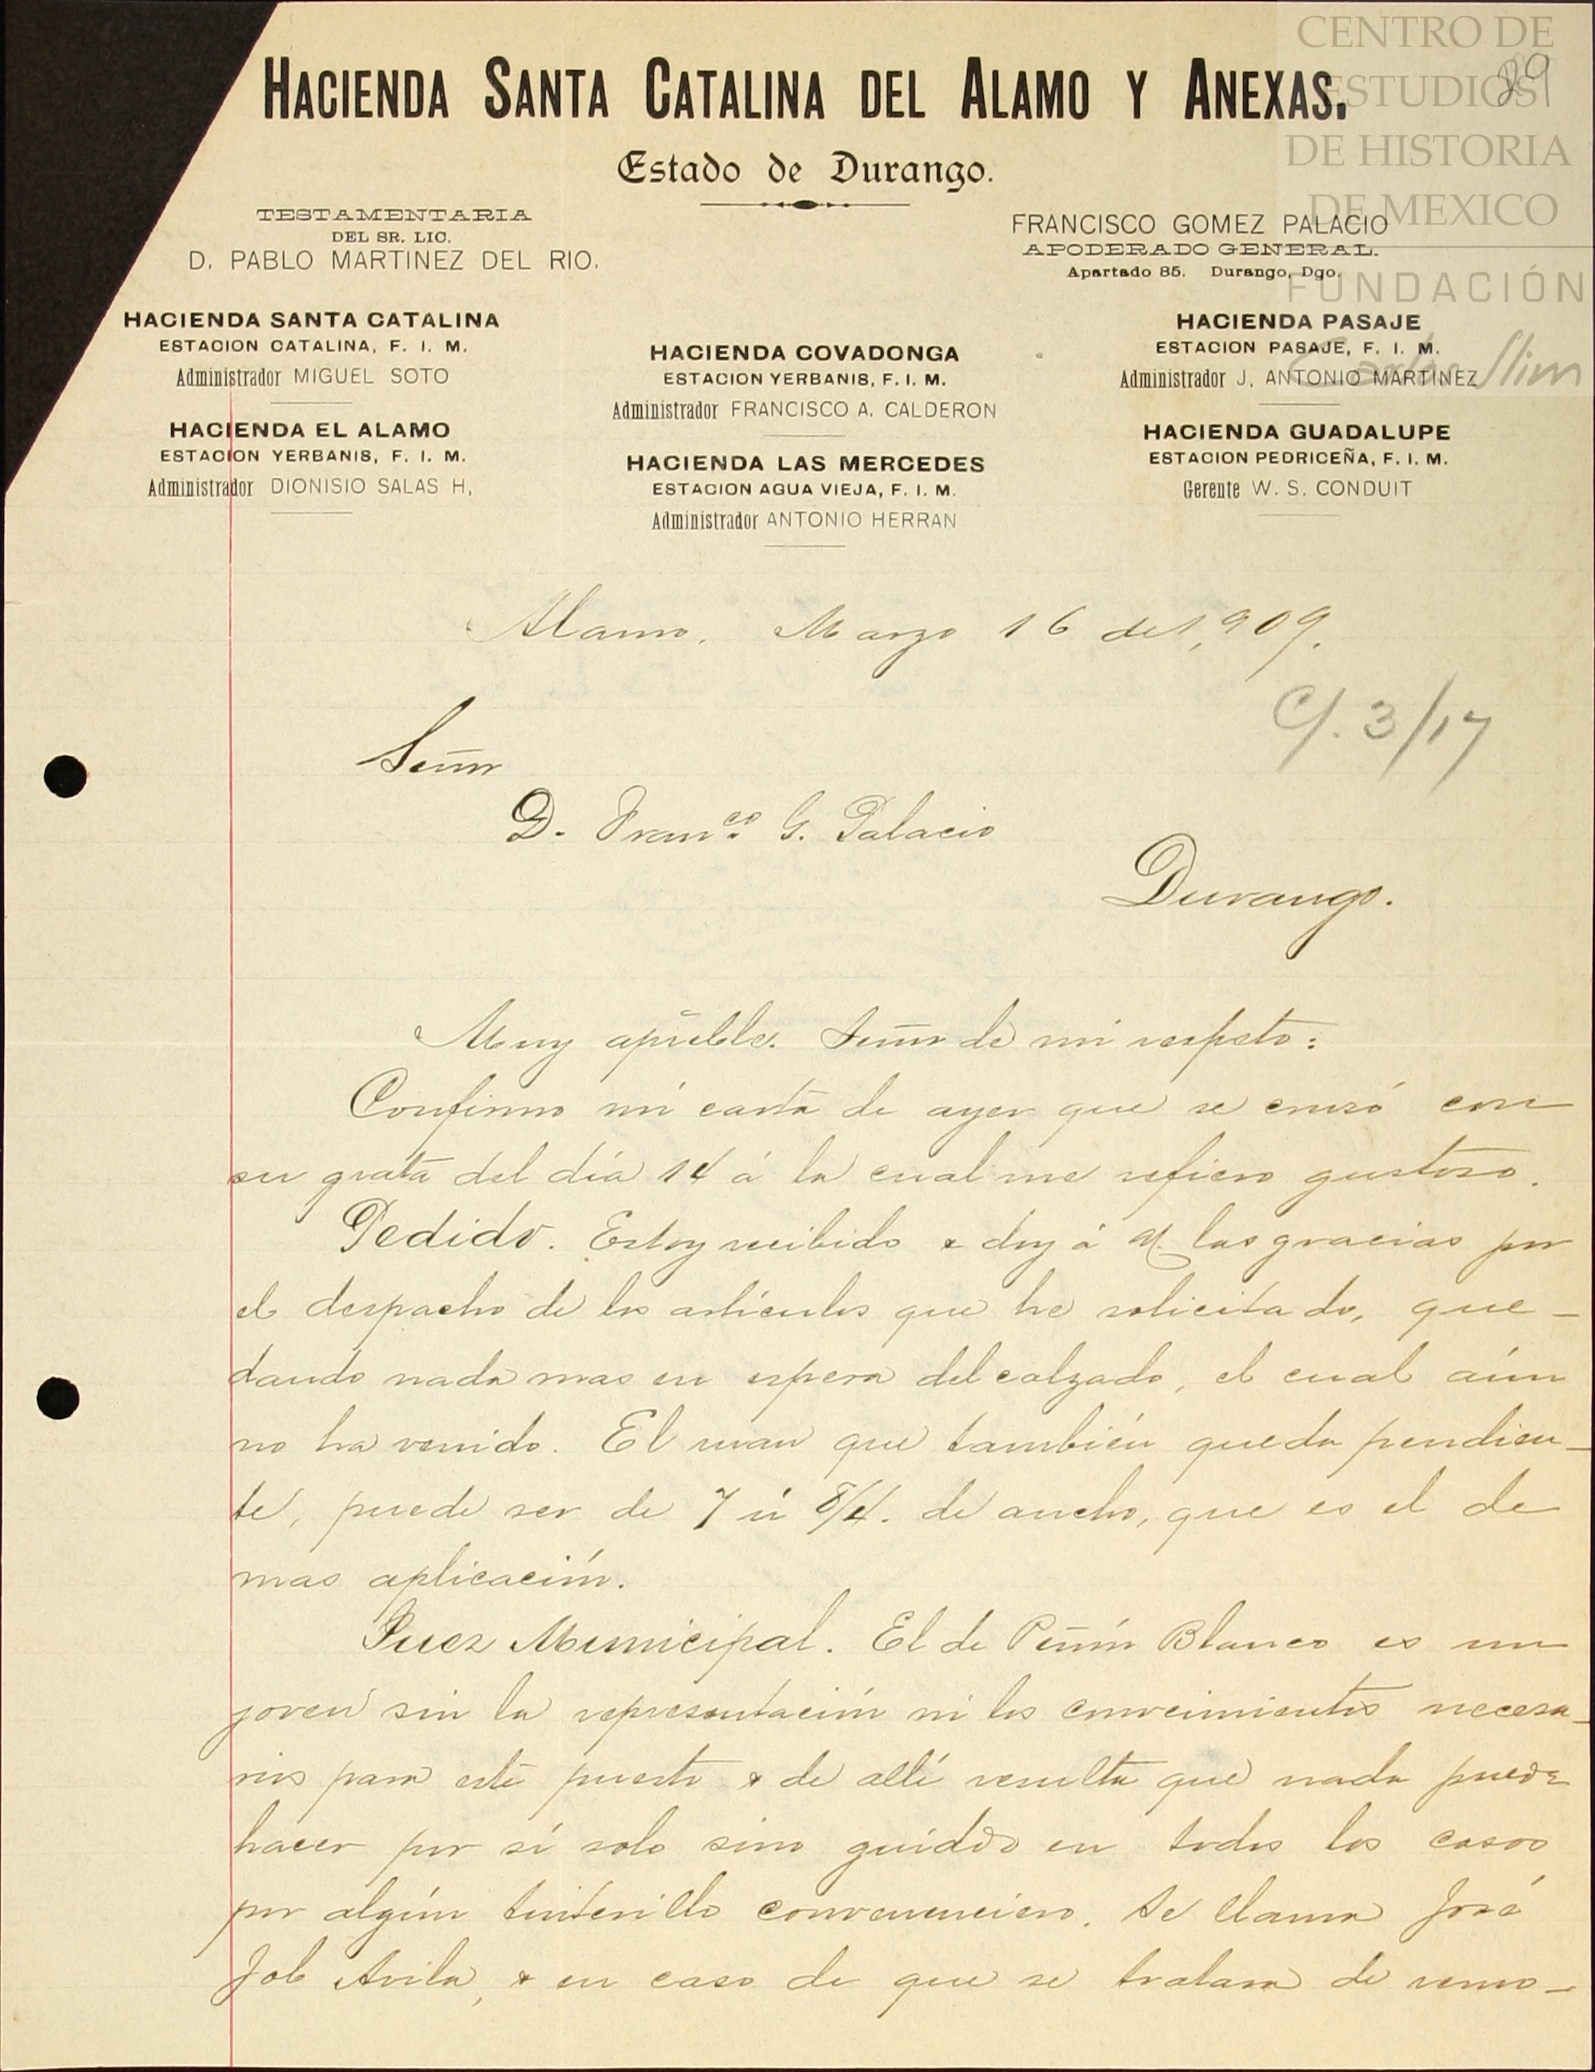 CENTRO DE
ESTUDIOS
DE HISTORIA
DE MEXICO
FUNDACIÓN
Carlos Slim
29
HACIENDA SANTA CATALINA DEL ALAMO Y ANEXAS.
Estado de Durango.
TESTAMENTARIA
DEL SR. LIC.
D. PABLO MARTINEZ DEL RIO.
FRANCISCO GOMEZ PALACIO
APODERADO GENERAL.
Apartado 85. Durango, Dgo.
HACIENDA SANTA CATALINA
ESTACION CATALINA, F. I. M.
Administrador MIGUEL SOTO
HACIENDA EL ALAMO
ESTACION YERBANIS, F. I. M.
Administrador DIONISIO SALAS H,
HACIENDA COVADONGA
ESTACION YERBANIS, F. I. M.
Administrador FRANCISCO A. CALDERON
HACIENDA LAS MERCEDES
ESTACION AGUA VIEJA, F. I. M.
Administrador ANTONIO HERRAN
HACIENDA PASAJE
ESTACION PASAJE, F. I. M.
Administrador J. ANTONIO MARTINEZ
HACIENDA GUADALUPE
ESTACION PEDRICEÑA, F. I. M.
Gerente W. S. CONDUIT
Alamo. Marzo 16 de 1,909.
C/. 3/17
Señor
D. Franco. G. Palacio
Durango.
Muy apreble. Señor de mi respeto:
Confirmo mi carta de ayer que se cruzó con
su grata del día 14 á la cual me refiero gustoso.
Pedido. Estoy recibido & doy á U. las gracias por
el despacho de los artículos que he solicitado, que-
dando nada mas en espera del calzado, el cual aún
no ha venido. El ruan que también queda pendien-
te, puede ser de 7 ú 8/4. de ancho, que es el de
mas aplicación.
Juez Municipal. El de Peñón Blanco es un
joven sin la representación ni los conocimientos necesa-
rios para este puesto & de allí resulta que nada puede
hacer por sí solo sino guiado en todos los casos
por algún tinterillo convenenciero. Se llama José
Job Avila, & en caso de que se tratara de remo-